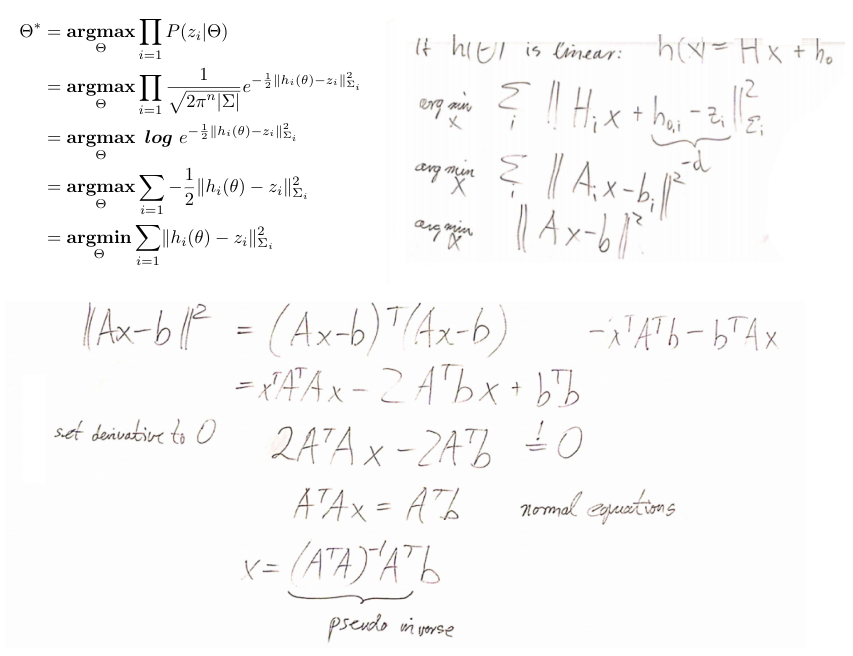 Θ* = argmax_Θ ∏_{i=1} P(z_i|Θ)
= argmax_Θ ∏_{i=1} 1/√(2π^n|Σ|) e^{-½‖h_i(θ)−z_i‖²_{Σ_i}}
= argmax_Θ log e^{-½‖h_i(θ)−z_i‖²_{Σ_i}}
= argmax_Θ ∑_{i=1} −½‖h_i(θ) − z_i‖²_{Σ_i}
= argmin_Θ ∑_{i=1} ‖h_i(θ) − z_i‖²_{Σ_i}
If h(·) is linear: h(x) = Hx + h_0
arg min_x Σ_i ‖H_i x + h_{0,i} − z_i‖²_{Σ_i}
−d
arg min_x Σ_i ‖A_i x − b_i‖²
arg min_x ‖Ax−b‖²
‖Ax−b‖² = (Ax−b)^T(Ax−b) −x^T A^T b − b^T A x
= x^T A^T A x − 2 A^T b x + b^T b
set derivative to 0 2A^T A x − 2A^T b =! 0
A^T A x = A^T b normal equations
x = (A^T A)^{-1} A^T b
pseudo inverse